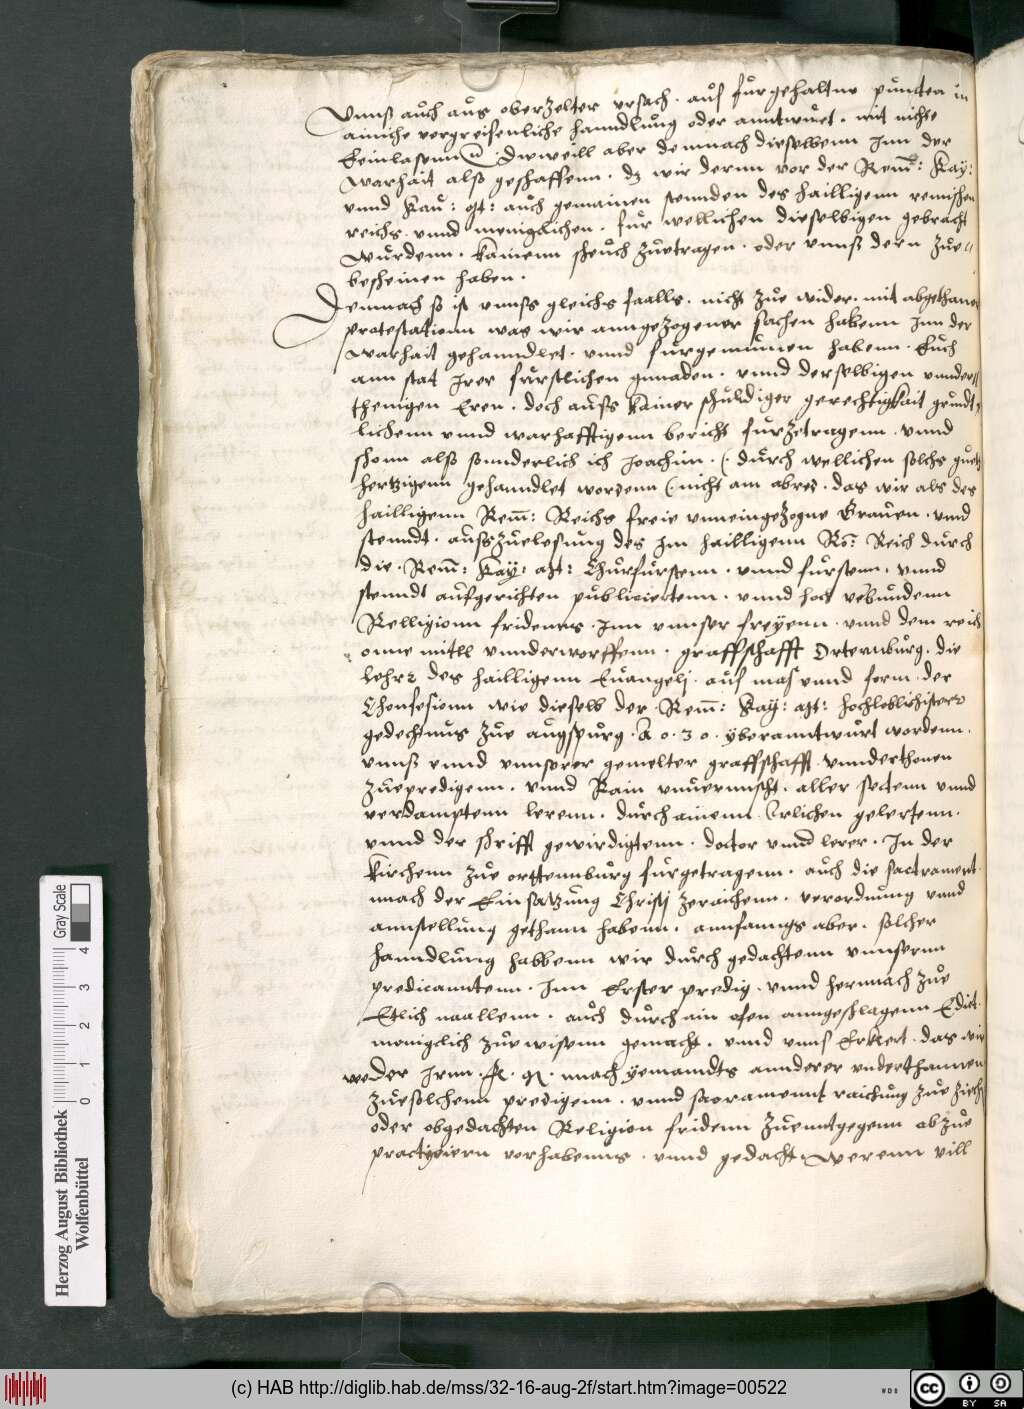 Vnnß auch aus oberzelter vrsach . auf furgehaltne puncten in
ainiche vergreiffenliche hanndlung oder anntwurt . mit nichte
Einlasenn . Dieweill aber demnach dieselbenn Inn der
warhait alß geschaffenn . dz wir denn vor der Rem: Kay:
vnnd Kun: Mt: auch gemainen stennden des hailligenn remischen
reichs . vnnd meniglichen . fur wellichen dieselbigen gebracht
wurdenn . kainenn scheuch zuetragen . oder vnnß denn zue
bescheinen haben .
Demnach so ist vnnß gleichs faalls . nicht zue wider . mit abgethaner
protestationn was wir anngezogener sachen habenn Inn der
warhait gehanndlet . vnnd furgenumen habenn . Euch
ann stat Irer furstlichen gnnaden . vnnd derselbigen vnnder
thenigen Eren . doch auß kainer schuldiger gerechtigkait grundt
lichenn vnnd warhafftigenn bericht furzetragenn . vnnd
schonn alß sonnderlich ich Joachim . ( durch wellichen solchs guet
hertzigenn gehanndlet wordenn ( nicht am abred . das wir als des
hailligenn Rem: Reichs freie vnneingezogne Grauen . vnd
stenndt . außzuelesung des im hailligenn Ro: Reich durch
die . Rem: Kay: Mt: Churfurstenn . vnnd furstenn . vnnd
stenndt aufgerichten publiciertenn . vnnd hoch verbundenn
Relligionn fridenns . Inn vnnser freyenn . vnnd dem reich
onne mitll vnnderworffenn . graffschafft Ortennburg . die
lehre des hailligenn Euangelj . auf mas vnnd form . der
Chonfesionn wie dieselb der Rem: Kay: Mt: hochleblichister
gedechtnus zue augspurg . A o . 3 0 . yberanntwurt wordenn .
vnnß vnnd vnnserer gemelter graffschafft vnnderthonen
zuepredigenn . vnnd Rain vnuermischt . aller sectenn vnnd
verdamptenn lerenn . durch ainenn . Erlichen gelertenn .
vnnd der schrifft gewirdigtenn . doctor vnnd lerer . In der
kirchenn zue orttennburg furgetragenn . auch die sactrament
nnach der Einsatzung Christj zeraichenn . verordnung vnnd
annstellung gethann habenn . annfanngs aber . solcher
hanndlung habbenn wir durch gedachtenn vnnserm
predicanntenn . Inn Erster predig . vnnd hernnach zue
Etlich naallenn . auch durch ain ofen anngeschlagenn Edict .
meniglich zue wissenn gemacht . vnnd vnns Erklert . das wir
weder Irnn . F . G . nnach yemanndts annderer vnderthannen
zuesolchenn predigenn . vnnd sacramennt raichung zue ziech
oder obgedachten Religion fridenn zuenntgegenn abzue
practyciern vorhabenns . vnnd gedacht werenn vill
Herzog August Bibliothek
Wolfenbüttel
0 1 2 3 4
Gray Scale
(c) HAB http://diglib.hab.de/mss/32-16-aug-2f/start.htm?image=00522
WDB
cc BY SA